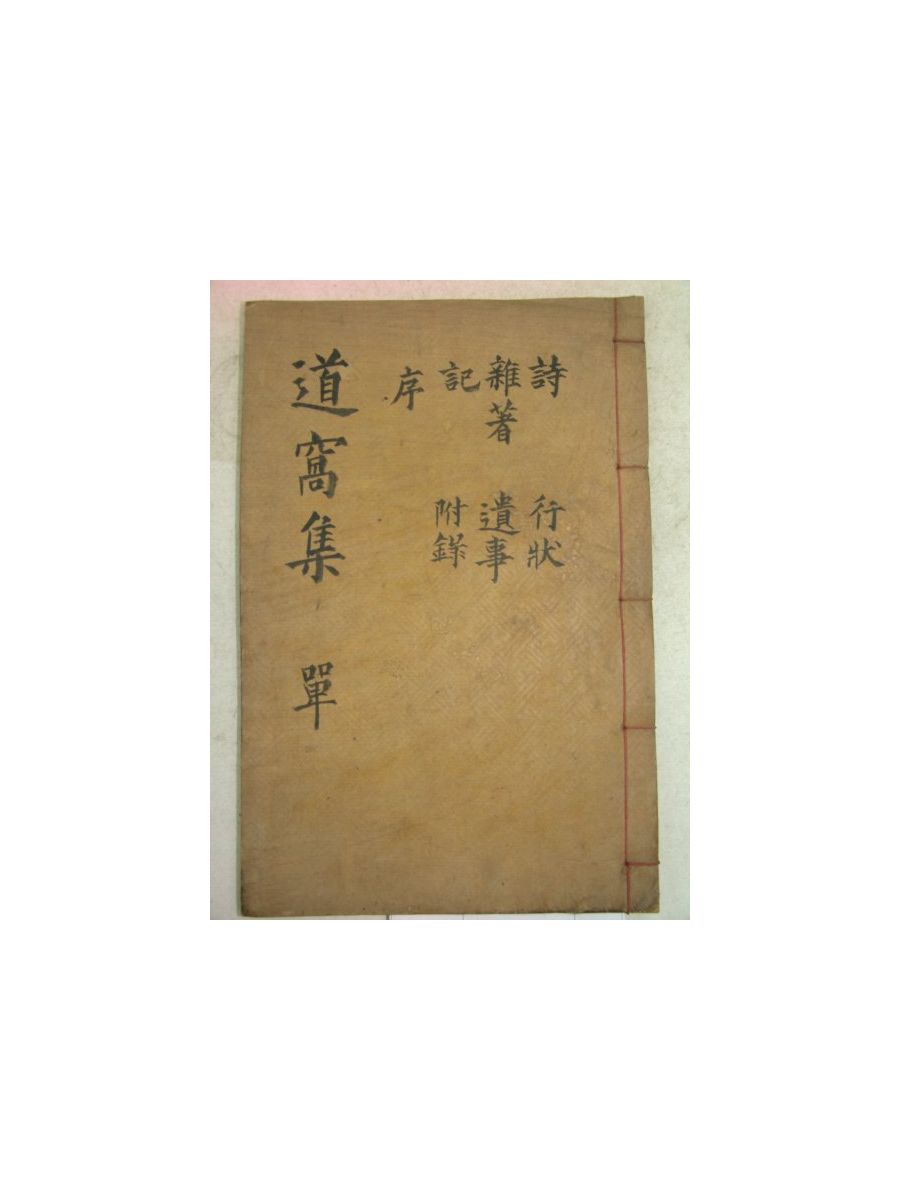 詩
雜著
記
序
行狀
遺事
附錄
道窩集 單